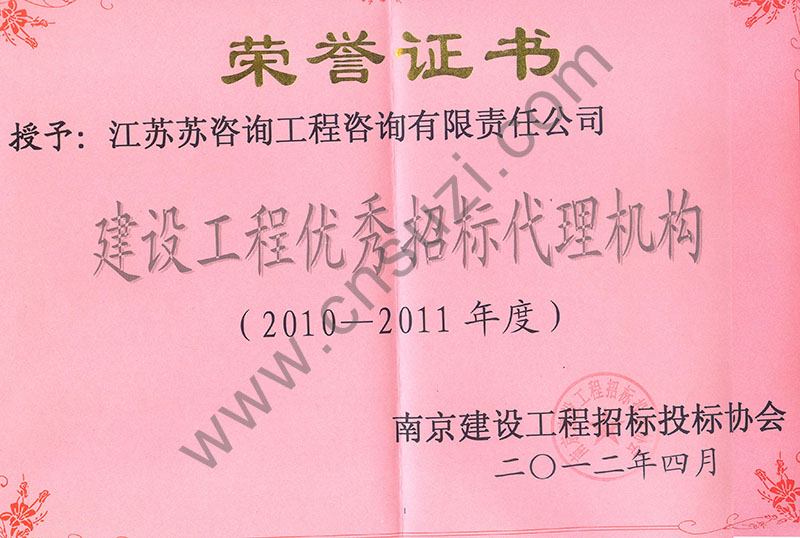 荣誉证书
授予：江苏苏咨询工程咨询有限责任公司
建设工程优秀招标代理机构
（2010—2011年度）
南京建设工程招标投标协会
二〇一二年四月
www.cnsuzi.com